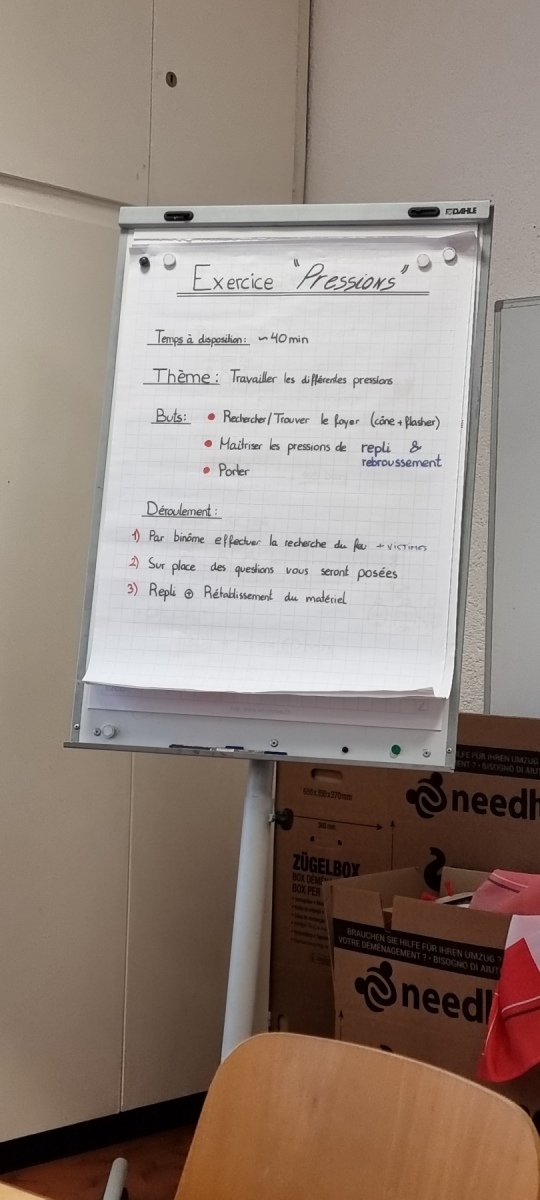 DAHLE
Exercice "Pressions"
Temps à disposition: ~40min
Thème: Travailler les différentes pressions
Buts: • Rechercher/Trouver le foyer (cône + flasher)
• Maîtriser les pressions de repli &
rebroussement
• Porter
Déroulement:
1) Par binôme effectuer la recherche du feu + VICTIMES
2) Sur place des questions vous seront posées
3) Repli ⊕ Rétablissement du matériel
LFE FÜR IHREN UMZUG
ENT? • BISOGNO DI AIU
needh
ZÜGELBOX
BOX DÉMÉN
BOX PER
BRAUCHEN SIE HILFE FÜR IHREN UMZUG ?
VOTRE DÉMÉNAGEMENT ? • BISOGNO DI AIUT
needh